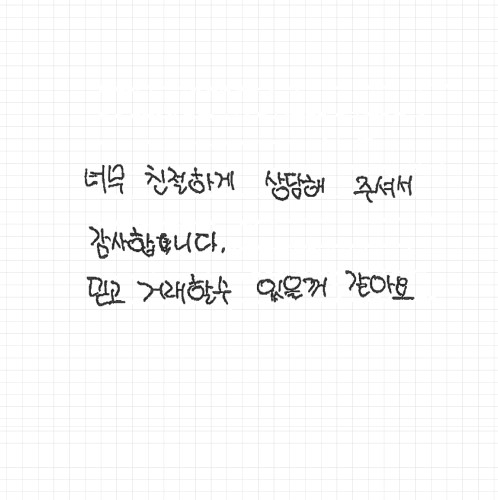 너무 친절하게 상담해 주셔서
감사합니다.
믿고 거래할수 있을꺼 같아요